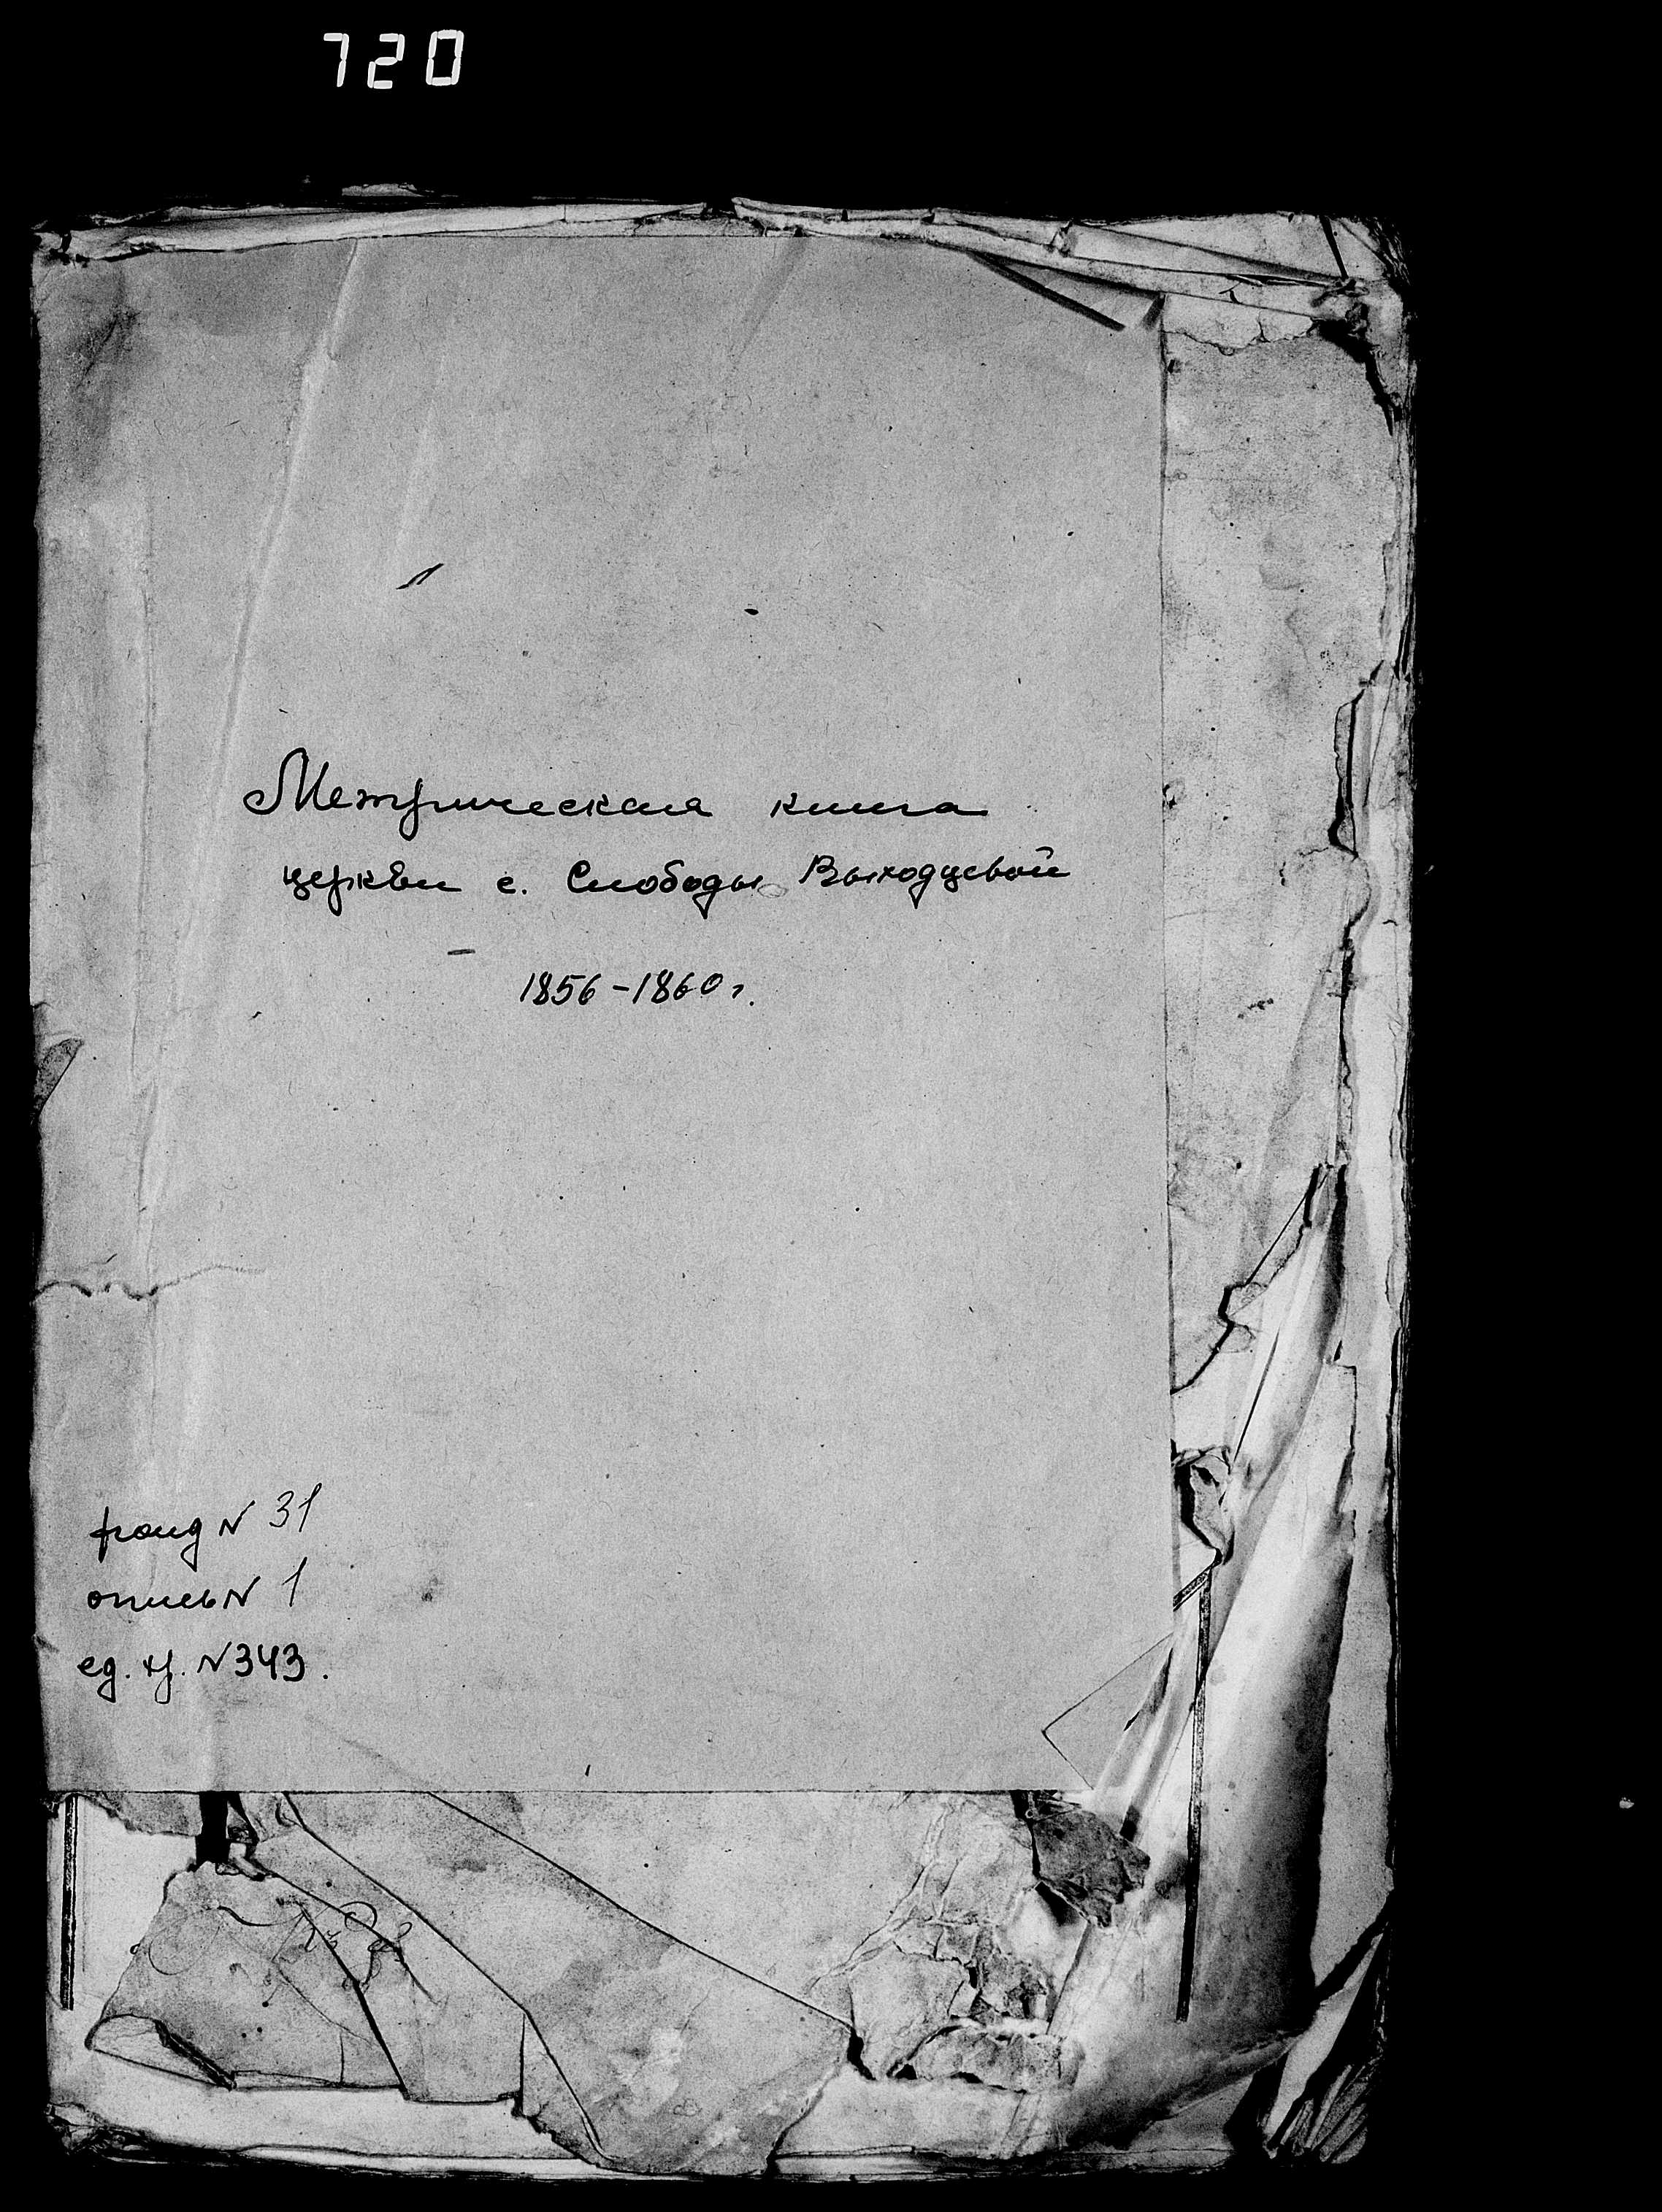 720
Метрическая книга
церкви с. Слободы Выходцевой
1856-1860г.
фонд N 31
опись N 1
ед. хр. N343.